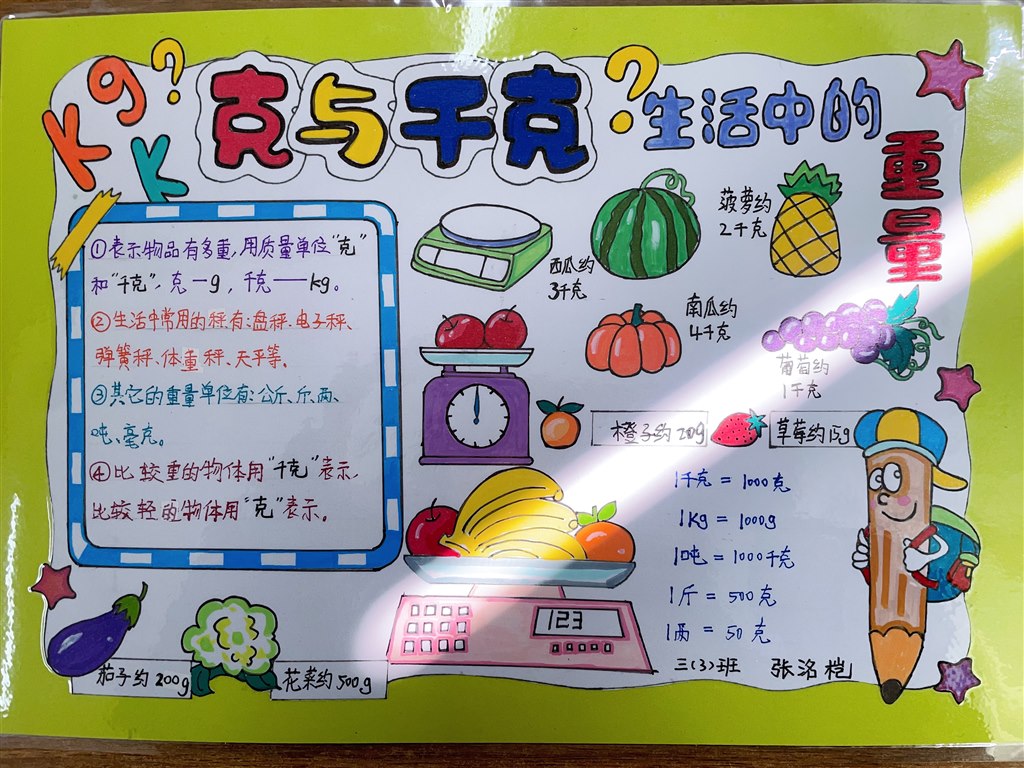 Kg
K
?
克与千克
?
生活中的
重量
①表示物品有多重,用质量单位"克"
和"千克"。克—g,千克——kg。
②生活中常用的秤有:盘秤、电子秤、
弹簧秤、体重秤、天平等。
③其它的重量单位有:公斤、斤、两、
吨、毫克。
④比较重的物体用"千克"表示,
比较轻的物体用"克"表示。
西瓜约
3千克
菠萝约
2千克
南瓜约
4千克
葡萄约
1千克
橙子约20g
草莓约15g
123
1千克=1000克
1Kg=1000g
1吨=1000千克
1斤=500克
1两=50克
茄子约200g
花菜约500g
三(3)班 张洺桤